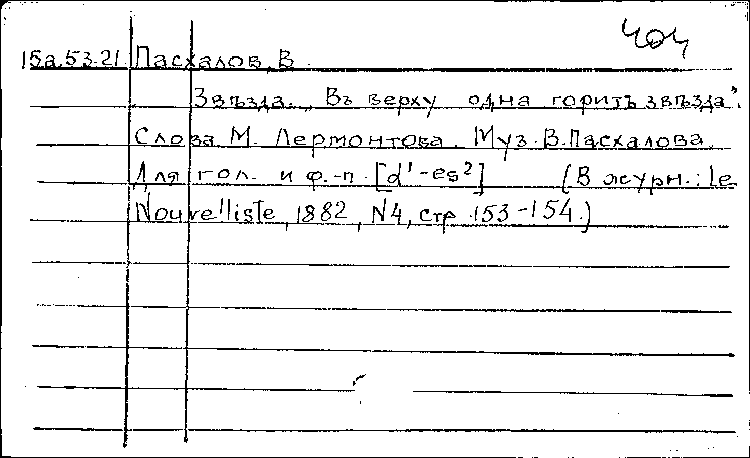 404
15а.53.21 Пасхалов, В.
Звѣзда. „Въ верху одна горитъ звѣзда".
Слова М. Лермонтова. Муз. В. Пасхалова.
Для гол. и ф.-п. [d¹-es²] (В журн.: Le
Nouvelliste, 1882, N4, стр. 153-154.)